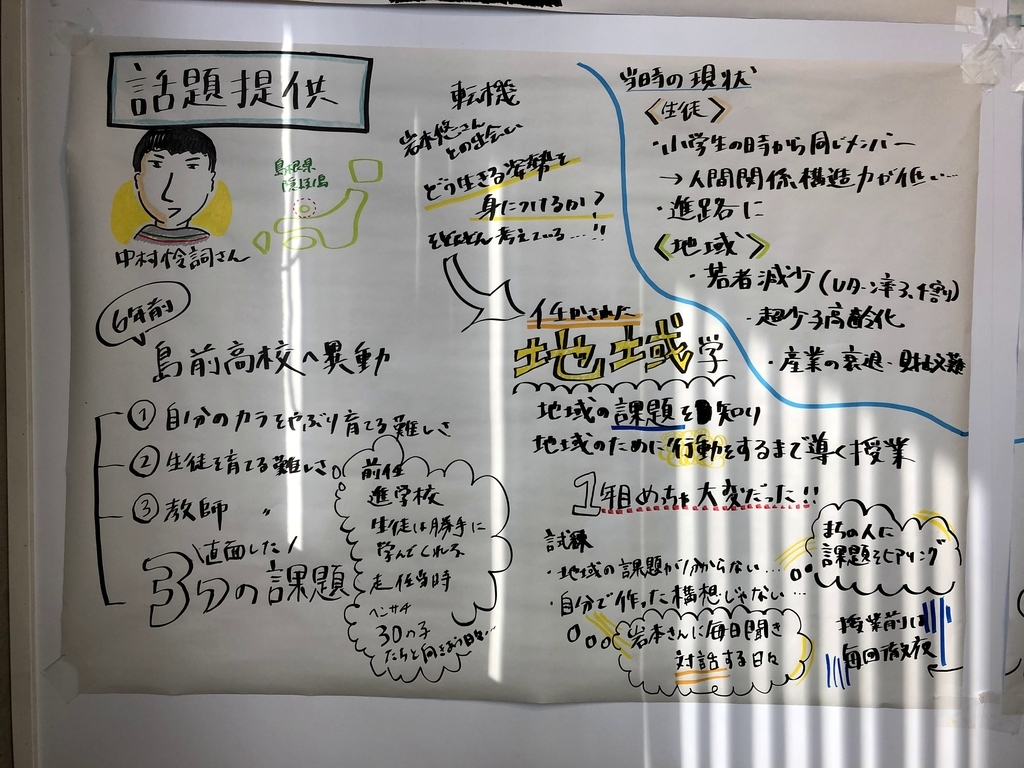 話題提供
島根県
隠岐島
中村怜詞さん
6年前
島前高校へ異動
① 自分のカラをやぶり育てる難しさ
② 生徒を育てる難しさ
③ 教師 〃
\直面した/
3つの課題
前任
進学校
生徒は勝手に
学んでくれる
赴任当時
ヘンサチ
30の子
たちと向きあう日々…
転機
岩本悠さん
との出会い
どう生きる姿勢を
身につけるか?
をとことん考えている…!!
任かされた
地域学
地域の課題を知り
地域のために行動をするまで導く授業
1年目めちゃ大変だった!!
試練
・地域の課題がわからない…
・自分で作った構想じゃない…
岩本さんに毎日聞き
対話する日々
まちの人に
課題をヒアリング
授業前は
毎回徹夜
当時の現状
〈生徒〉
・小学生の時から同じメンバー
→人間関係構造力が低い…
・進路に
〈地域〉
・若者減少(Uターン率3、4割)
・超少子高齢化
・産業の衰退・財政難